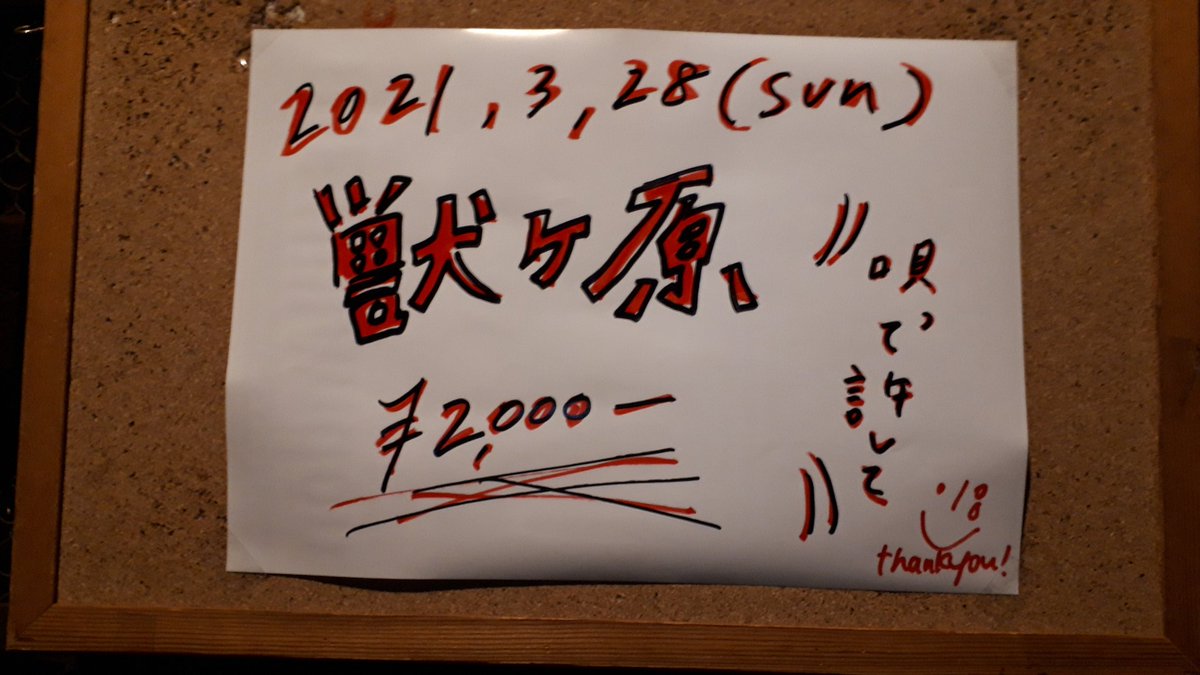 2021,3,28(sun)
獣ヶ原、
¥2,000ー
〃唄で許して〃
thankyou!